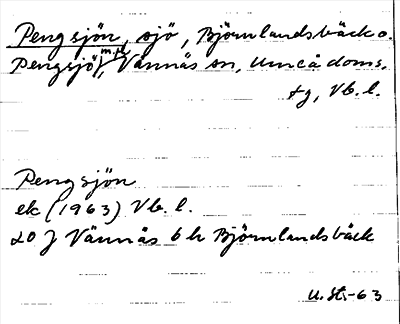 Pengsjön, sjö, Björnlandsbäck o.
Pengsjö, m.fl. Vännäs sn, Umeå doms.
tg, Vb. l.
Pengsjön
ek (1963) Vb. l.
20 J Vännäs 6 h Björnlandsbäck
u. St.-63